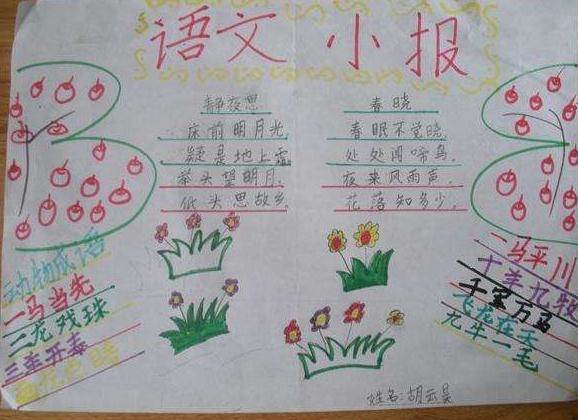 语文小报
静夜思
床前明月光,
疑是地上霜,
举头望明月,
低头思故乡。
春晓
春眠不觉晓,
处处闻啼鸟,
夜来风雨声,
花落知多少。
动物成语
一马当先
二龙戏珠
三羊开泰
一马平川
十羊九牧
千军万马
飞龙在天
九牛一毛
姓名:胡云昊